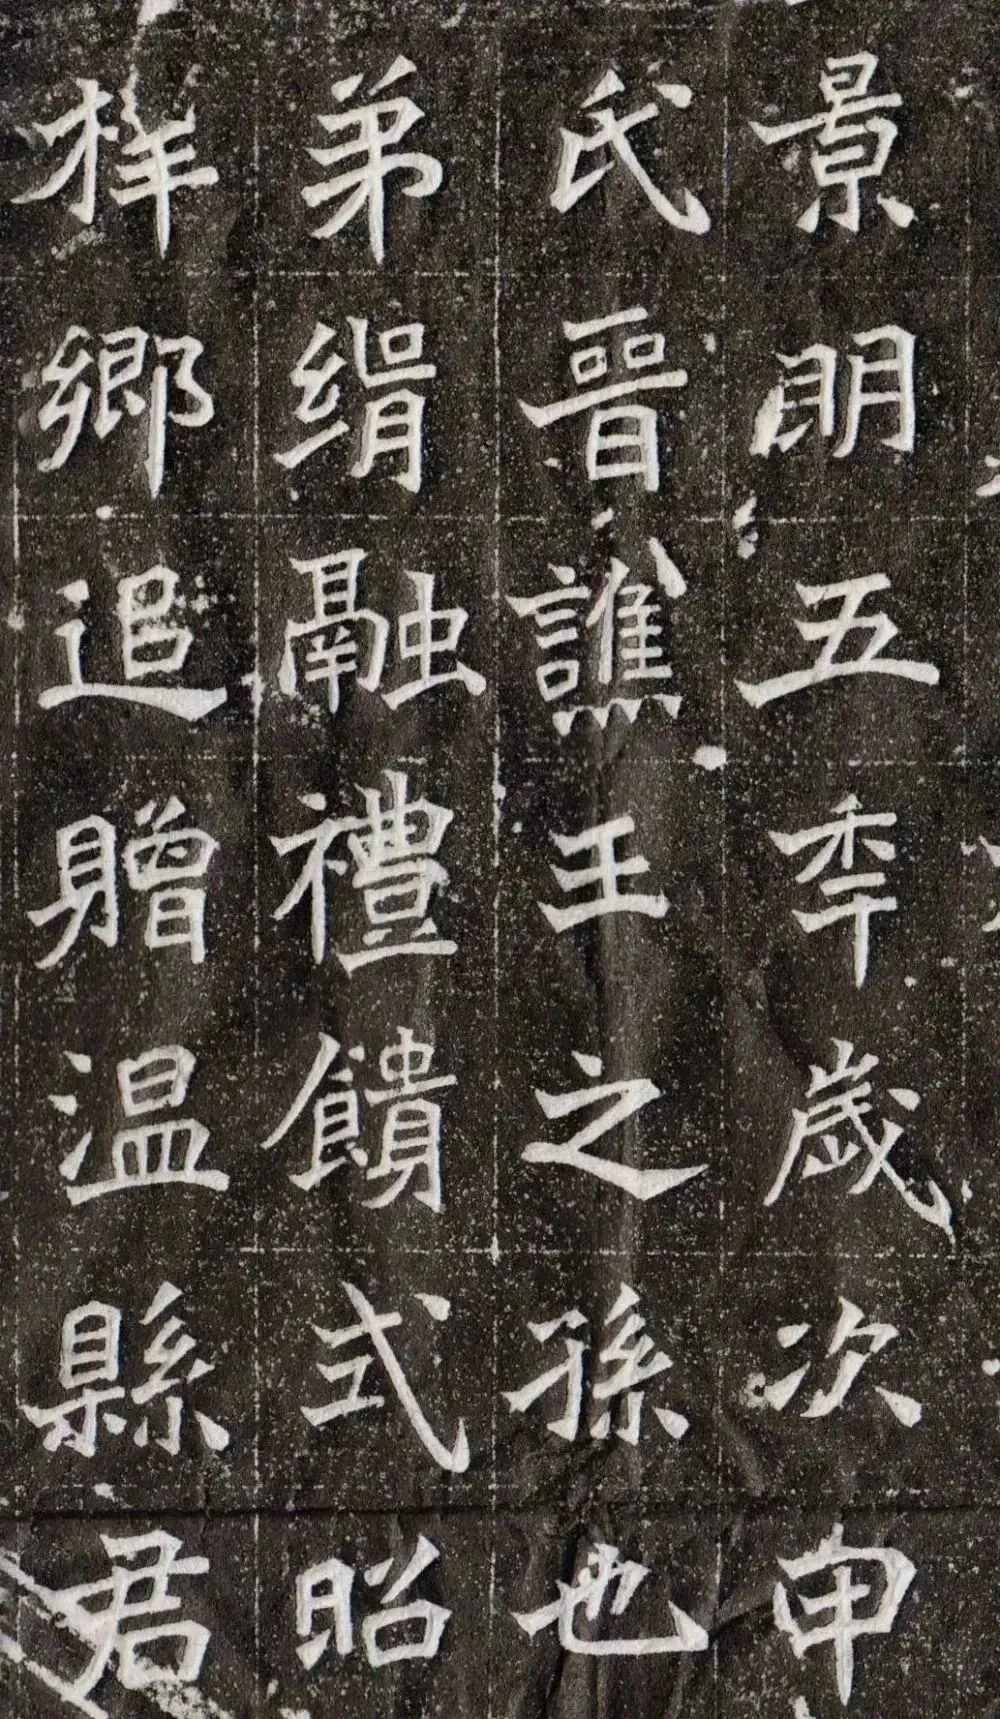 景明五秊歲次申
氏晉譙王之孫也
弟緝融禮饋式昭
梓鄉追贈温縣君